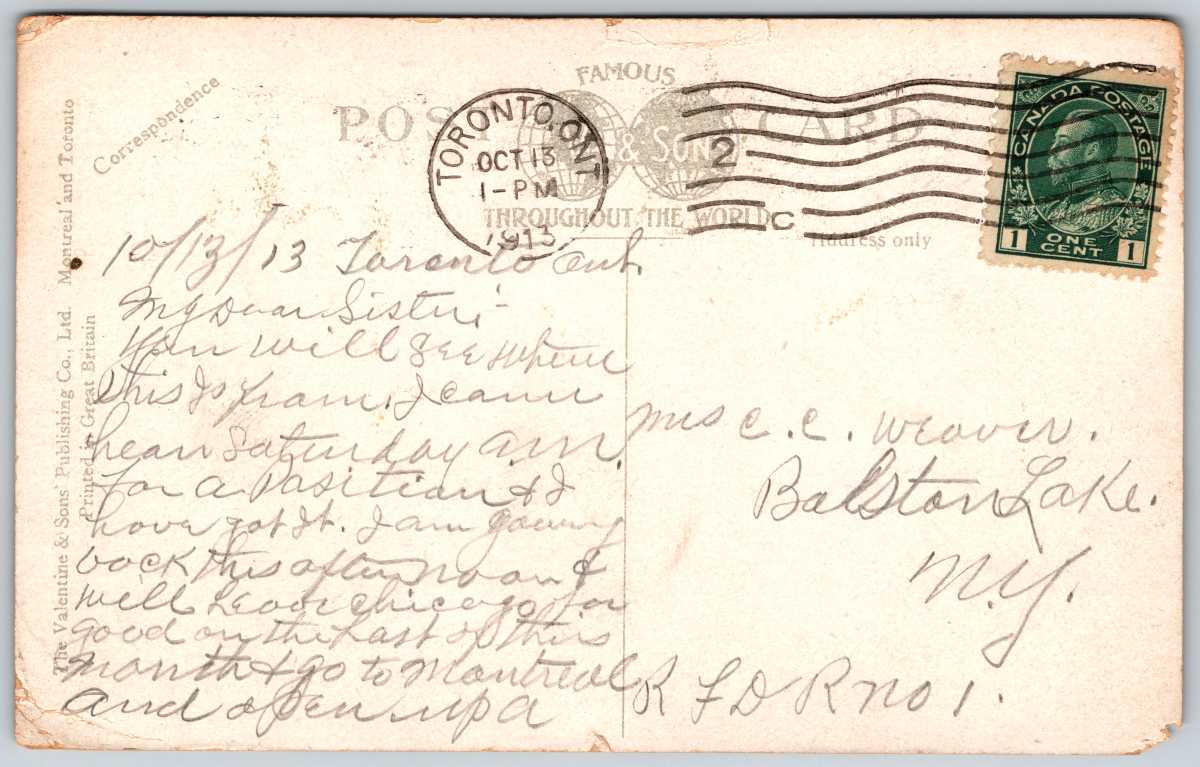 Correspondence
POST CARD
FAMOUS
& SONS
THROUGHOUT THE WORLD
Address only
TORONTO, ONT
OCT 13
1-PM
1913
2
C
CANADA POSTAGE
1 ONE CENT 1
The Valentine & Sons' Publishing Co., Ltd. Montreal and Toronto
Printed in Great Britain
10/13/13 Toronto Ont.
My Dear Sister:-
You will see where
this Is from. I came
hear Saturday a.m.
for a Position & I
have got It. I am going
back this afternoon &
will Leave Chicago for
good on the Last of this
month & go to Montreal
and open up a
Mrs C. C. Weaver.
Balston Lake.
N.Y.
R F D R no 1.